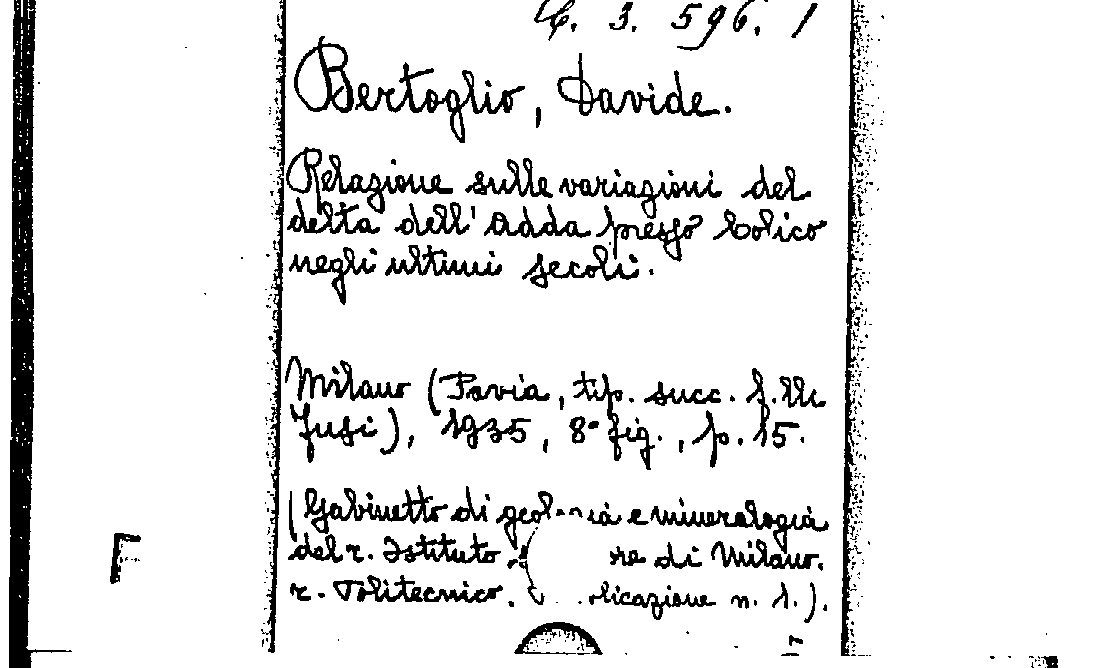 C. 3. 596. 1
Bertoglio, Davide.
Relazione sulle variazioni del
delta dell'Adda presso Colico
negli ultimi secoli.
Milano (Pavia, tip. succ. f.lli
Fusi), 1935, 8° fig., p. 15.
(Gabinetto di geologia e mineralogia
del r. Istituto re di Milano.
r. Politecnico. blicazione n. 1.).
7